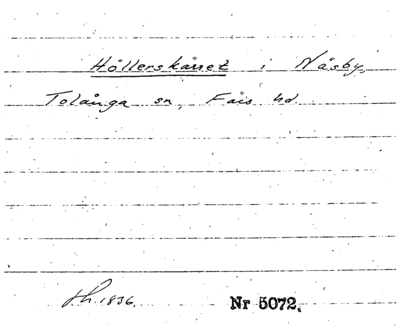 Höllerskärret i Näsby,
Tolånga sn, Färs hd.
1836. Nr 5072.